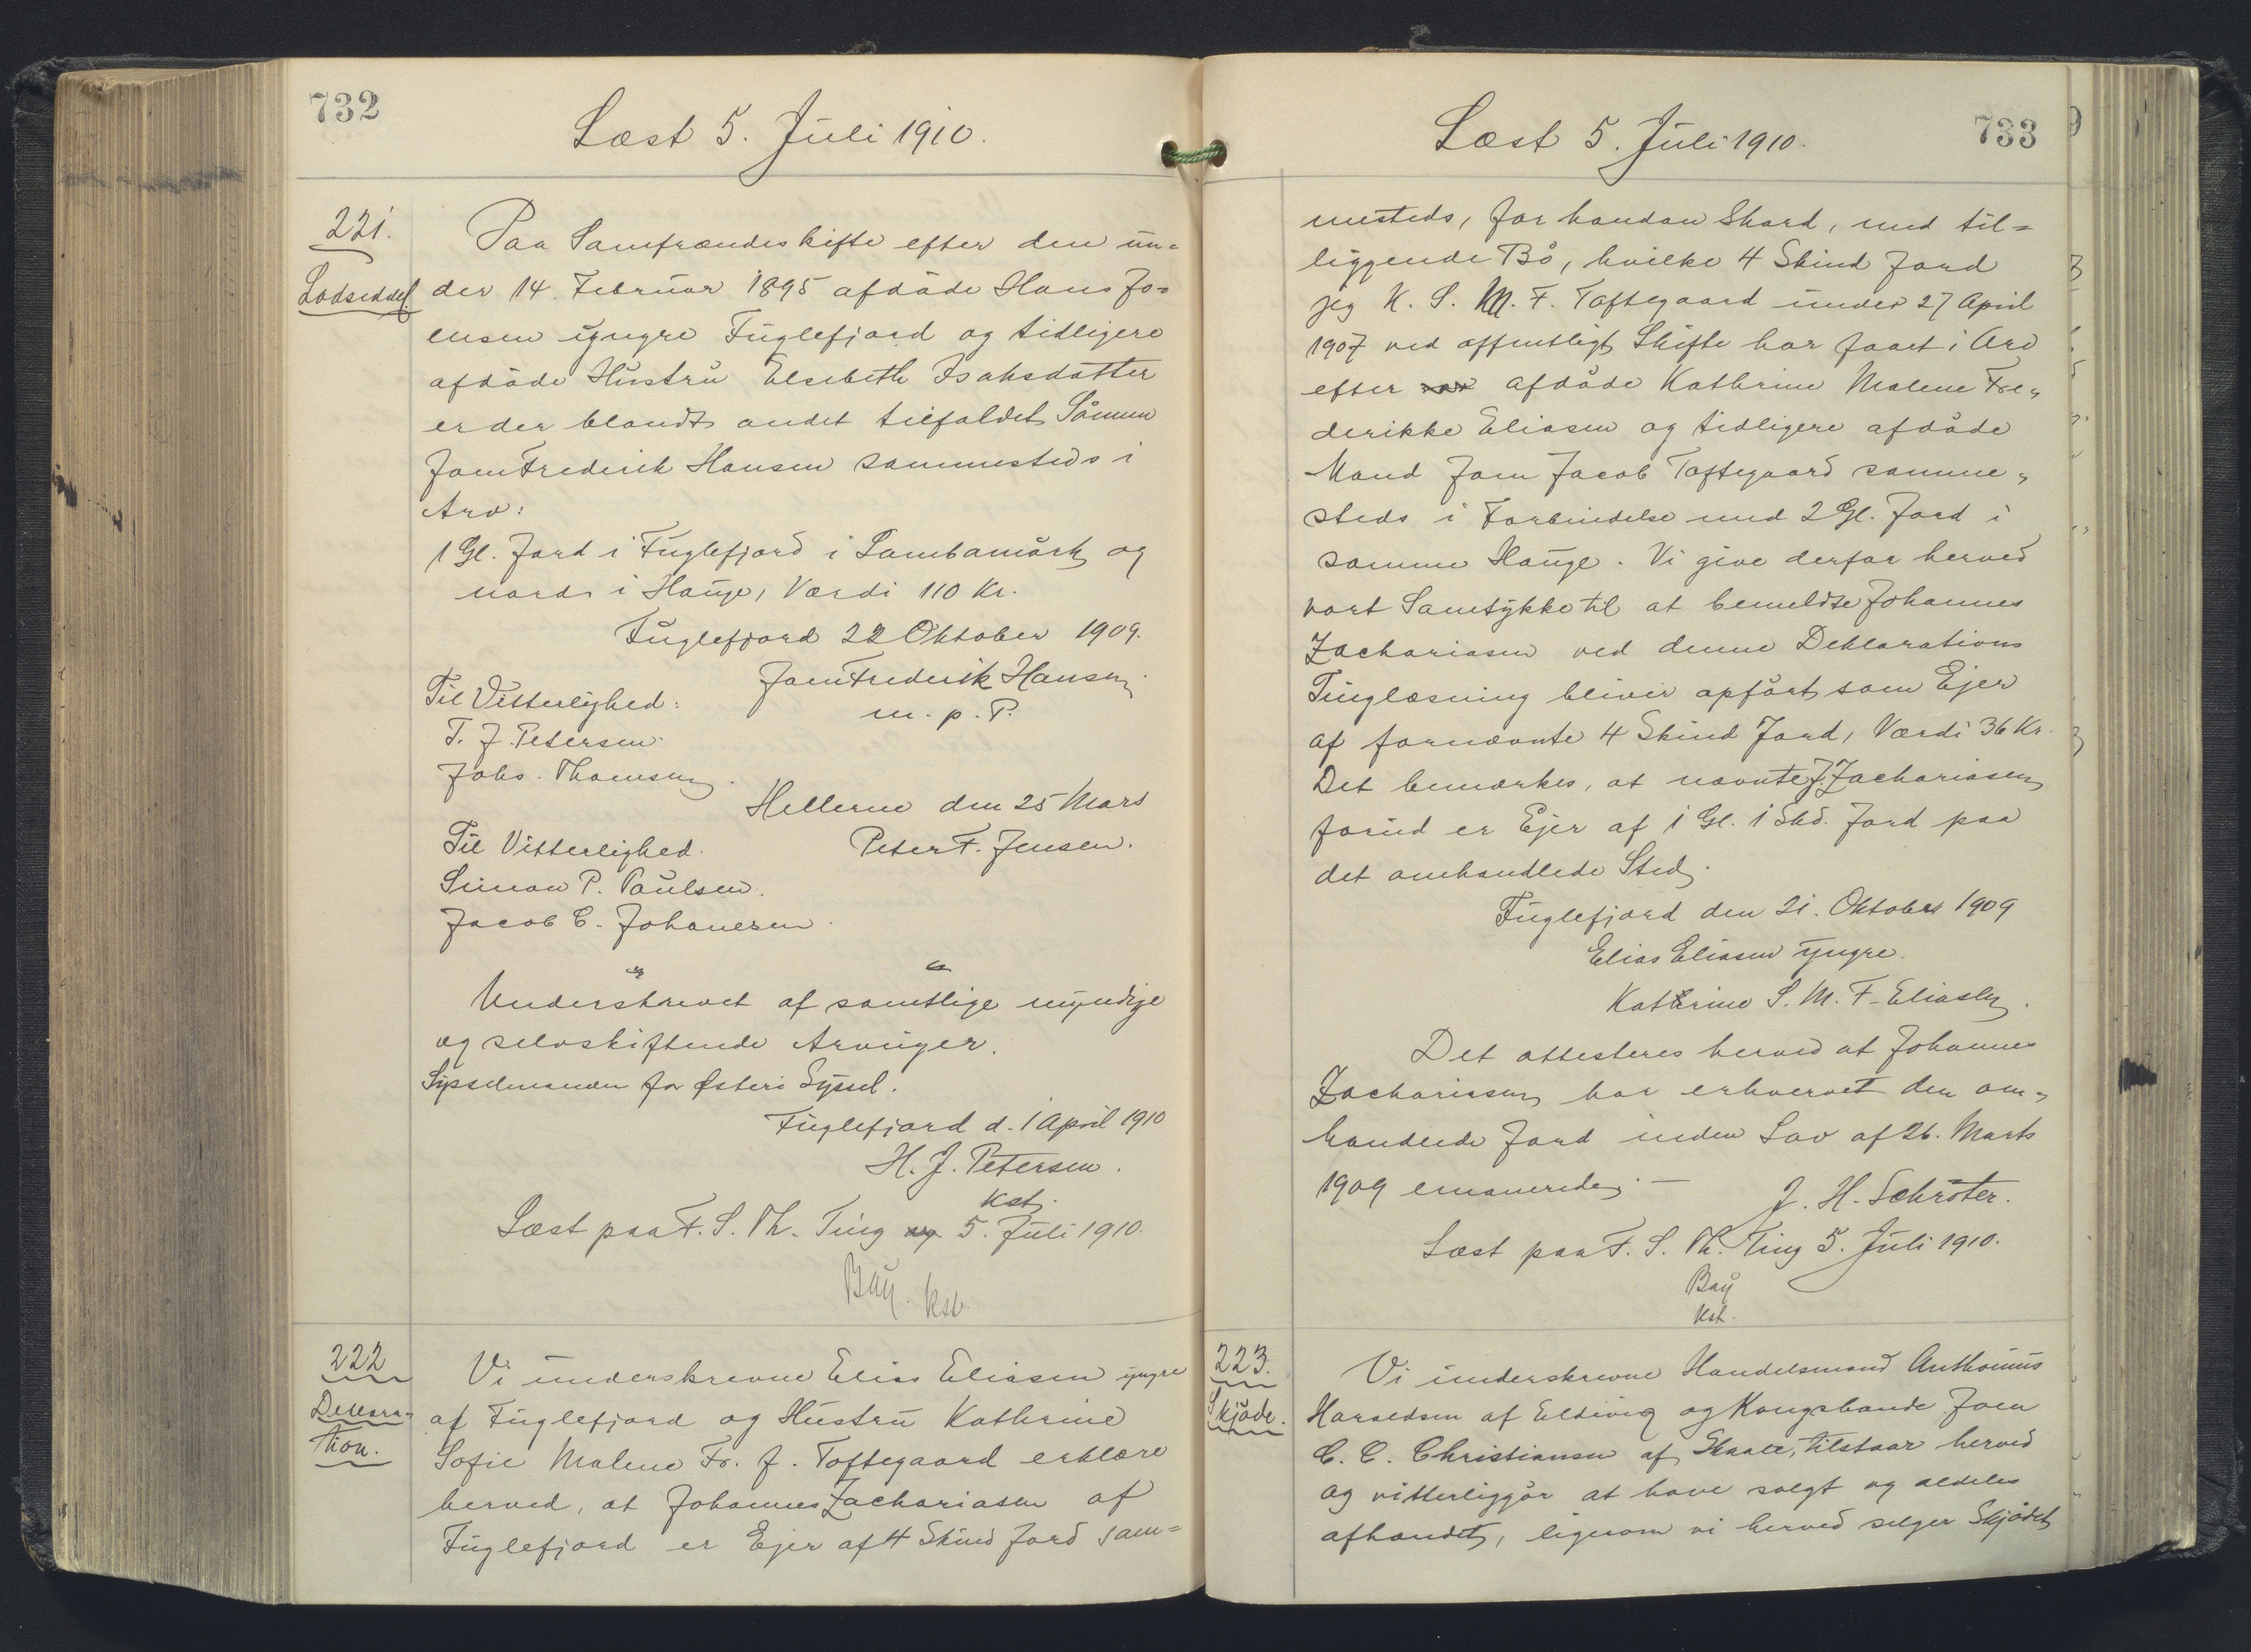 732
Læst 5. Juli 1910.
221.
Lodseddel
Paa Samfrændeskifte efter den un=
der 14. Februar 1895 afdøde Hans Jo=
ensen yngre Fuglefjord og tidligere
afdøde Hustru Elsebeth Isaksdatter
er der blandt andet tilfaldet Sønnen
Joen Frederik Hansen sammesteds i
Arv:
1 Gl. Jord i Fuglefjord i Lambamørk og
nords i Hauge, Værdi 110 Kr.
Fuglefjord 22 Oktober 1909.
Joen Frederik Hansen
m. p. P.
Til Vitterlighed:
T. J. Petersen.
Johs. Thomsen.
Hellerne den 25 Mars
Peter F. Jensen.
Til Vitterlighed.
Simon P. Poulsen.
Jacob C. Johanesen.
Underskrevet af samtlige myndige
og selvskiftende Arvinger.
Sysselmanden for Østerø Syssel.
Fuglefjord d. 1 April 1910
H. J. Petersen.
Kst.
Læst paa F. S. Th. Ting 5. Juli 1910.
Bay. kst.
222
Deklara=
tion.
Vi underskrevne Elias Eliasen yngre
af Fuglefjord og Hustru Kathrine
Sofie Malene Fr. J. Toftegaard erklære
herved, at Johannes Zachariasen af
Fuglefjord er Ejer af 4 Skind Jord sam=
733
Læst 5. Juli 1910.
mesteds, for handan Skard, med til=
liggende Bø, hvilke 4 Skind Jord
jeg K. S. M. F. Toftegaard under 27 April
1907 ved offentligt Skifte har faaet i Arv
efter afdøde Kathrine Malene Fre„
derikke Eliasen og tidligere afdøde
Mand Joen Jacob Toftegaard samme„
steds i Forbindelse med 2 Gl. Jord i
samme Hauge. Vi give derfor herved
vort Samtykke til at bemeldte Johannes
Zachariasen ved denne Deklarations
Tinglæsning bliver opført som Ejer
af fornævnte 4 Skind Jord, Værdi 36 Kr.
Det bemærkes, at nævnte J. Zachariasen
forud er Ejer af 1 Gl. 1 Skd. Jord paa
det omhandlede Sted.
Fuglefjord den 21. Oktober 1909
Elias Eliasen yngre.
Kathrine S. M. F. Eliasen.
Det attesteres herved at Johannes
Zachariasen har erhvervet den om„
handlede Jord inden Lov af 26. Marts
1909 emanerede. —
J. H. Schrøter.
Læst paa F. S. Th. Ting 5. Juli 1910.
Bay
kst.
223.
Skjøde.
Vi underskrevne Handelsmand Anthonius
Haraldsen af Eldevig og Kongsbonde Joen
C. C. Christiansen af Skaale, tilstaar herved
og vitterliggør at have solgt og aldeles
afhændet, ligesom vi herved sælger Skjødet